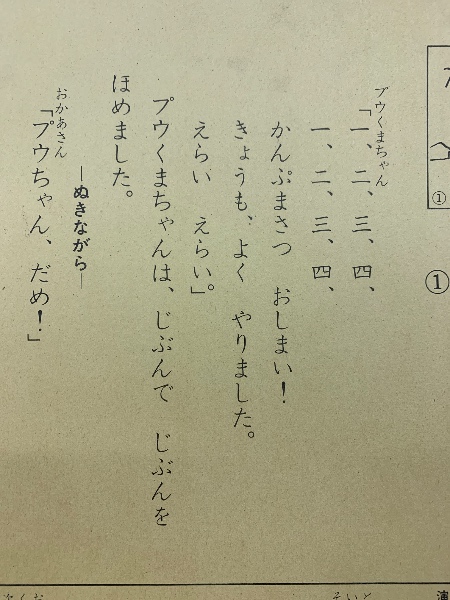 ①
①
プウくまちゃん
「一、二、三、四、
一、二、三、四、
かんぷまさつ おしまい!
きょうも、よく やりました。
えらい えらい」。
プウくまちゃんは、じぶんで じぶんを
ほめました。
―ぬきながら―
おかあさん
「プウちゃん、だめ!」
そいと
演